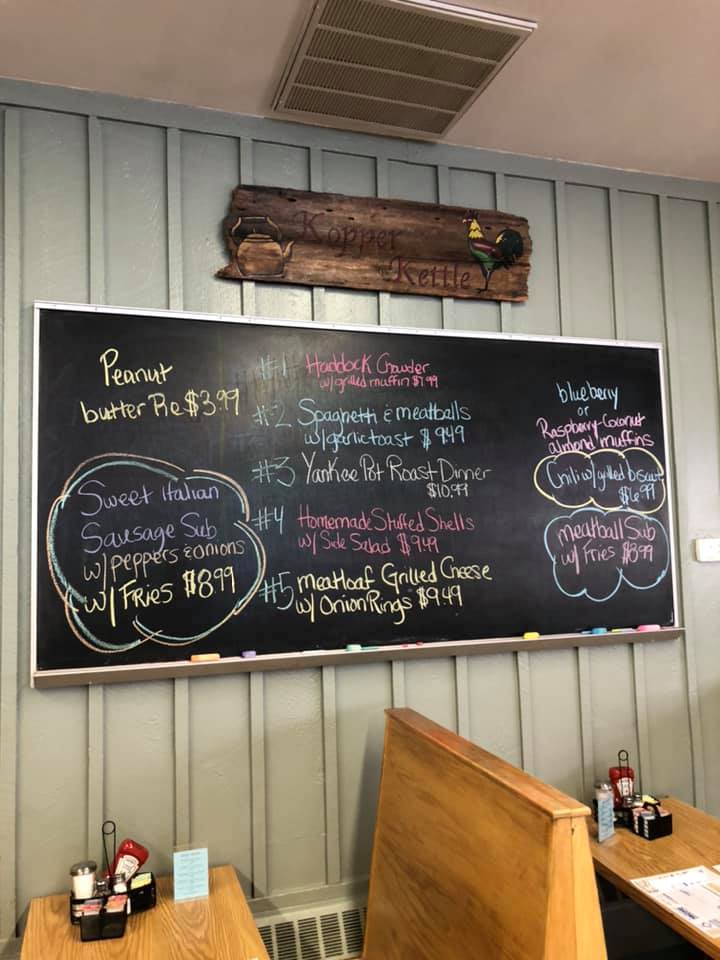 Kopper
Kettle
Peanut
butter Pie $3.99
Sweet italian
Sausage Sub
w/ peppers & onions
w/ Fries $8.99
#1 Haddock Chowder
w/ grilled muffin $7.99
#2 Spaghetti & meatballs
w/ garlic toast $9.49
#3 Yankee Pot Roast Dinner
$10.99
#4 Homemade Stuffed Shells
w/ Side Salad $9.49
#5 meatloaf Grilled Cheese
w/ Onion Rings $9.49
blueberry
or
Raspberry-Coconut
almond muffins
Chili w/ grilled biscuit
$6.99
meatball Sub
w/ Fries $8.99